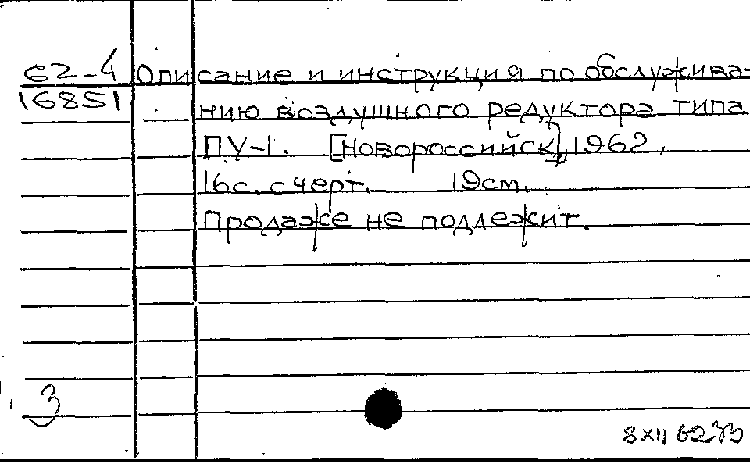 62-4 Описание и инструкция по обслужива-
16851 нию воздушного редуктора типа
ПУ-1. [Новороссийск], 1962,
16 с. с черт. 19 см.
Продаже не подлежит.
3
8 XII 62